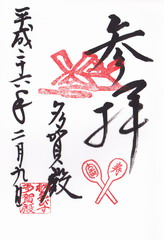 参拝
多賀殿
平成二十六年二月九日